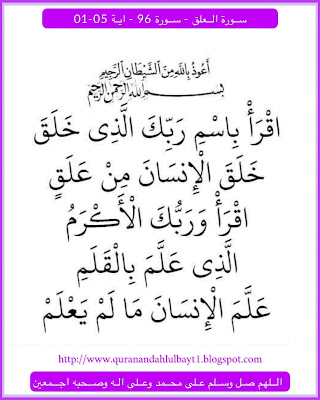 سورة العلق - سورة 96 - اية 05-01
أعوذ بالله من الشيطان الرجيم
بسم الله الرحمن الرحيم
اقْرَأْ بِاسْمِ رَبِّكَ الَّذِى خَلَقَ
خَلَقَ الْإِنْسَانَ مِنْ عَلَقٍ
اقْرَأْ وَرَبُّكَ الْأَكْرَمُ
الَّذِى عَلَّمَ بِالْقَلَمِ
عَلَّمَ الْإِنْسَانَ مَا لَمْ يَعْلَمْ
http://www.quranandahlulbayt1.blogspot.com
اللهم صل وسلم على محمد وعلى اله وصحبه اجمعين